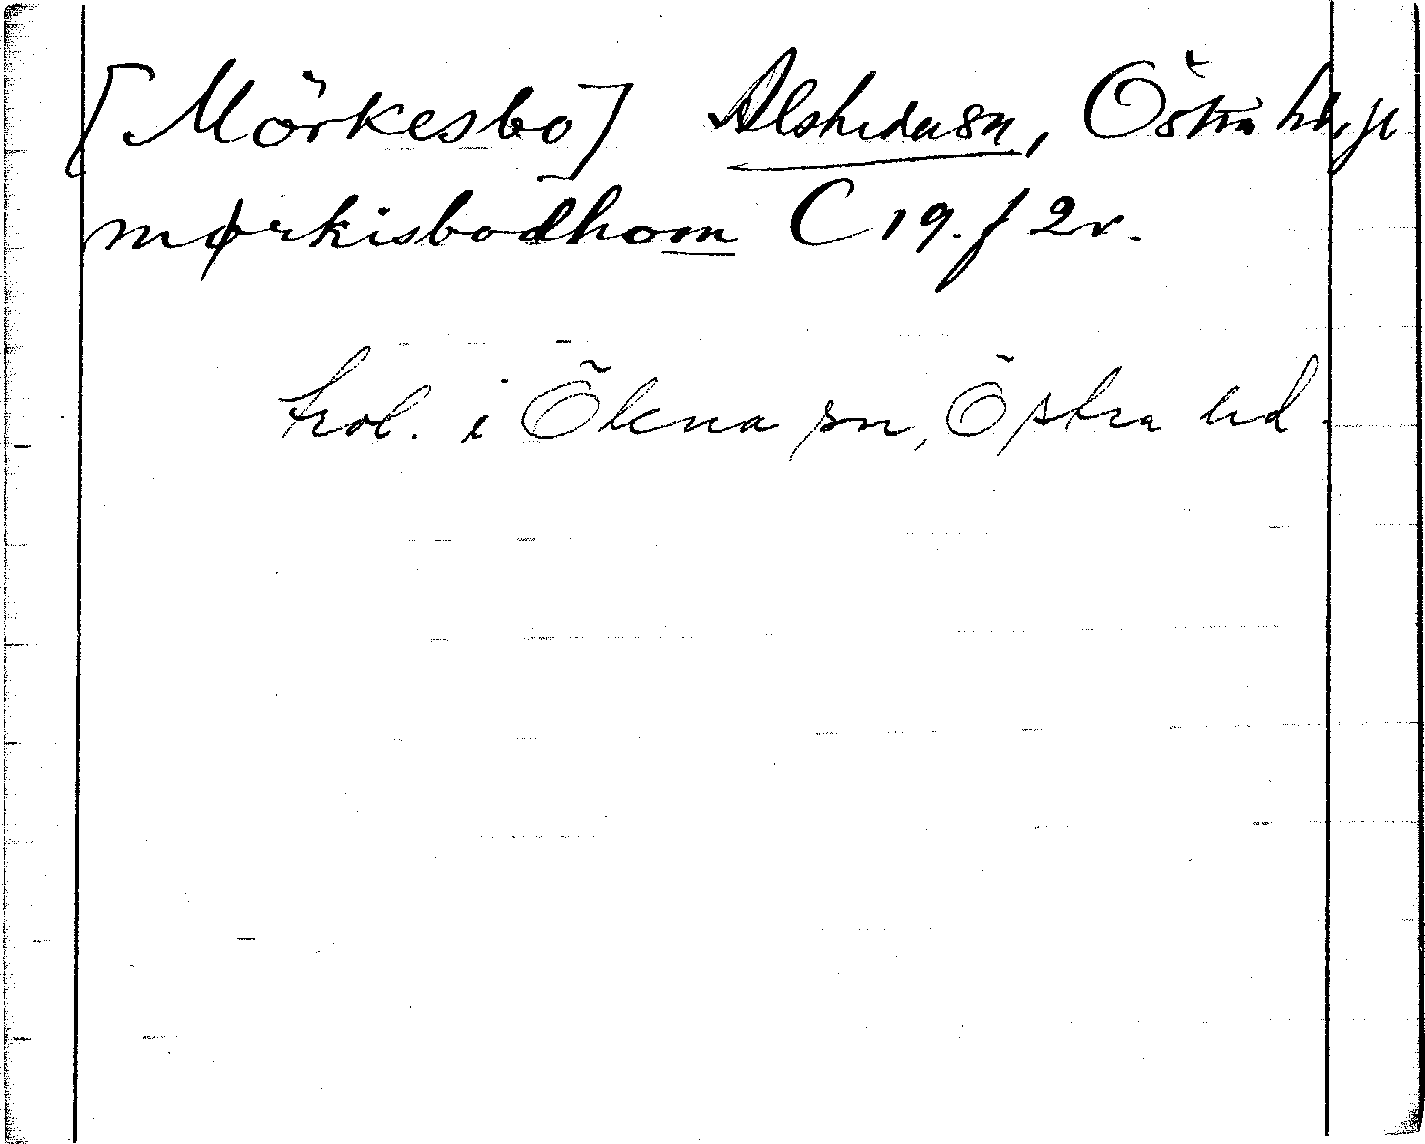 [Mörkesbo] Alsheda sn, Östra hd, Jk
mørkisbodhom C 19. f 2v.
trol. i Ökna sn, Östra hd.